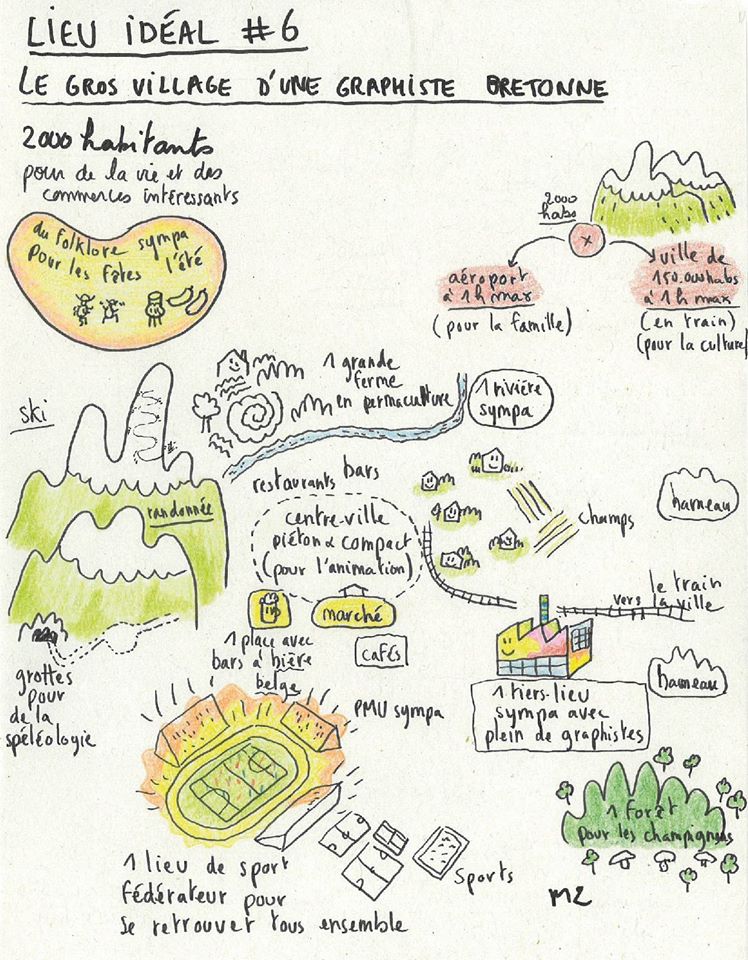 LIEU IDÉAL #6
LE GROS VILLAGE D'UNE GRAPHISTE BRETONNE
2000 habitants
pour de la vie et des
commerces intéressants
du folklore sympa
pour les fêtes l'été
2000
habs
x
aéroport
à 1h max
(pour la famille)
ville de
150.000 habs
à 1h max
(en train)
(pour la culture)
ski
randonnée
grottes
pour
de la
spéléologie
1 grande
ferme
en permaculture
1 rivière
sympa
restaurants bars
centre-ville
piéton & compact
(pour l'animation)
marché
1 place avec
bars à bière
belge
cafés
PMU sympa
champs
hameau
le train
vers la ville
hameau
1 tiers-lieu
sympa avec
plein de graphistes
1 forêt
pour les champignons
1 lieu de sport
fédérateur pour
se retrouver tous ensemble
sports